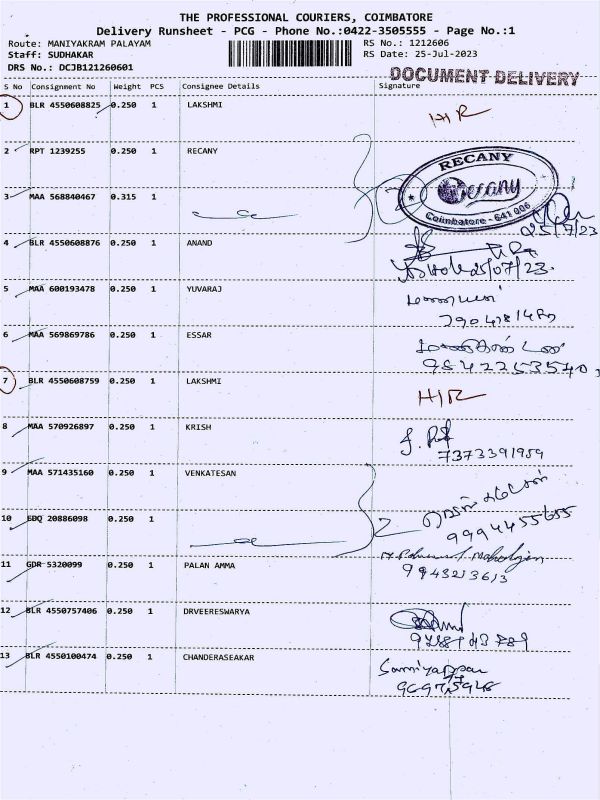 THE PROFESSIONAL COURIERS, COIMBATORE
Delivery Runsheet - PCG - Phone No.:0422-3505555 - Page No.:1
Route: MANIYAKRAM PALAYAM
RS No.: 1212606
Staff: SUDHAKAR
RS Date: 25-Jul-2023
DRS No.: DCJB121260601
DOCUMENT DELIVERY
S No Consignment No Weight PCS Consignee Details Signature
1 BLR 4550608825 0.250 1 LAKSHMI H/R
2 RPT 1239255 0.250 1 RECANY
RECANY
Recany
Coimbatore - 641 006
3 MAA 568840467 0.315 1
25/7/23
4 BLR 4550608876 0.250 1 ANAND
25/07/23
5 MAA 600193478 0.250 1 YUVARAJ
6 MAA 569869786 0.250 1 ESSAR
7 BLR 4550608759 0.250 1 LAKSHMI H/R
8 MAA 570926897 0.250 1 KRISH
7373391959
9 MAA 571435160 0.250 1 VENKATESAN
10 EDQ 20886098 0.250 1 2
9994455655
11 GDR 5320099 0.250 1 PALAN AMMA
9943213613
12 BLR 4550757406 0.250 1 DRVEERESWARYA
13 BLR 4550100474 0.250 1 CHANDERASEAKAR